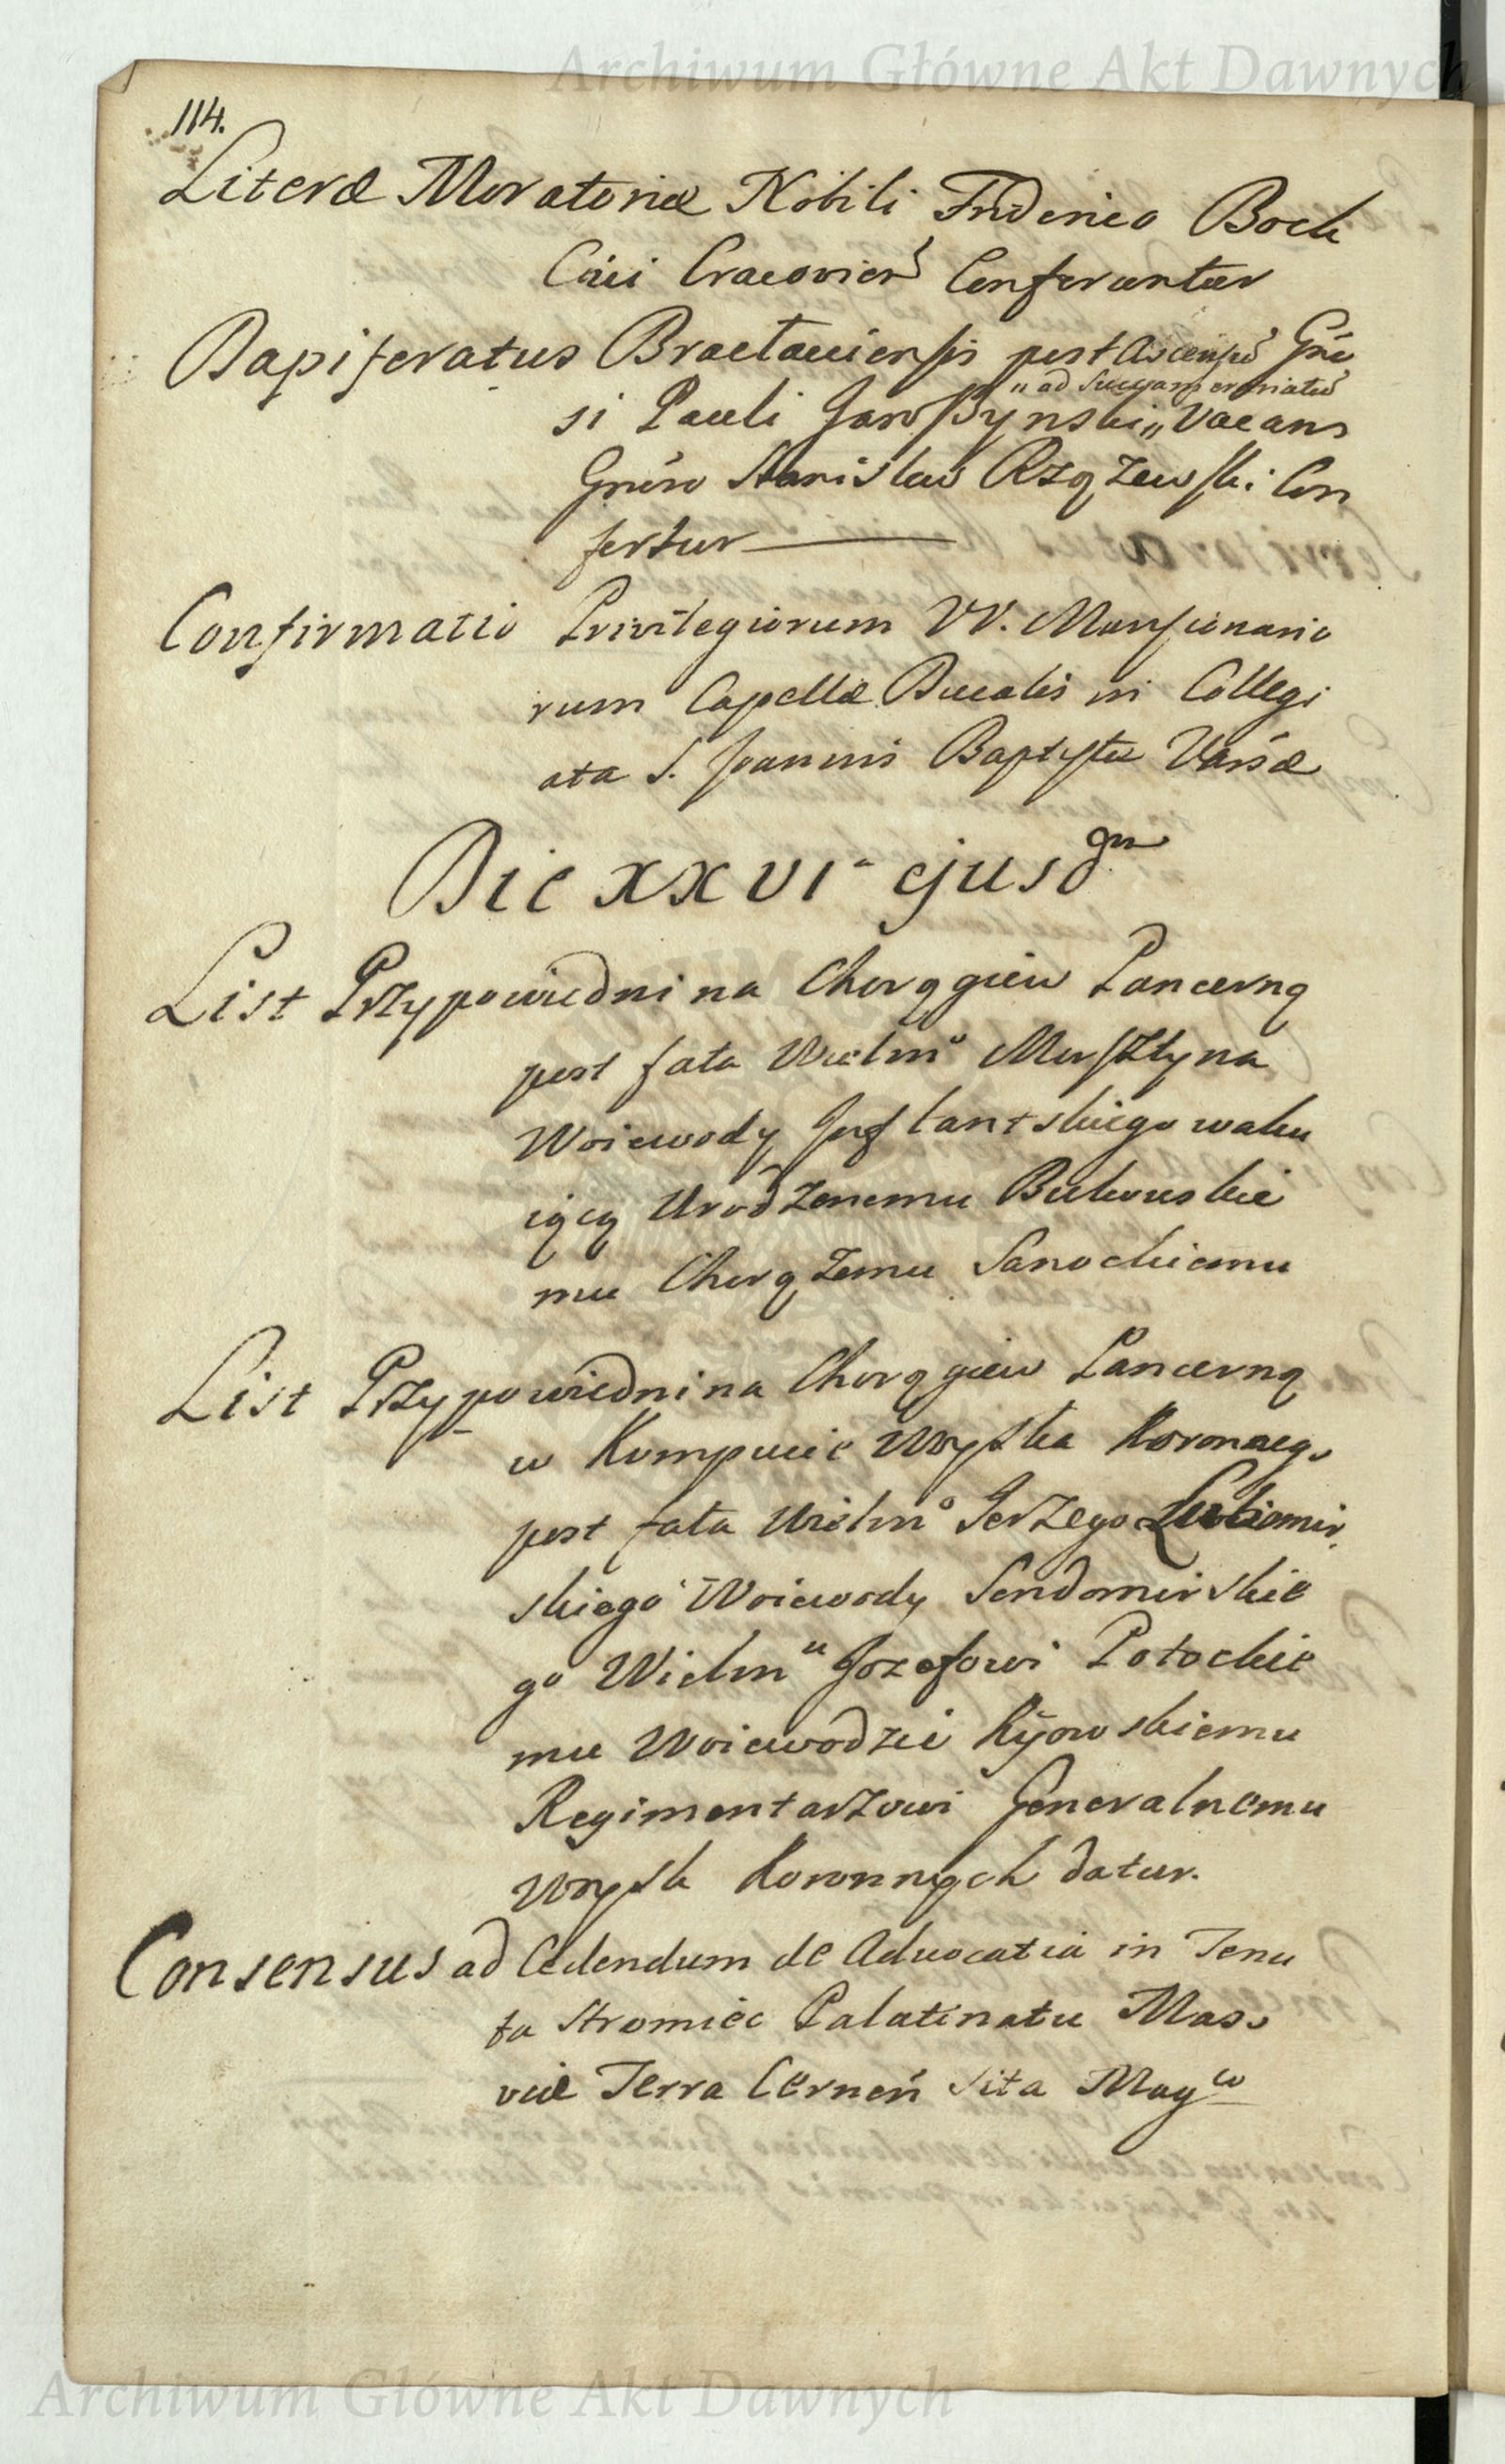 Archiwum Główne Akt Dawnych
114.
Literæ Moratoriæ Nobili Friderico Bock
Civi Cracovień Conferuntur
Dapiferatus Braclaviensis post Ascensũ Gńo
" ad Succamerariatũ
si Pauli Jaroszynski " Vacans
Gnóso Stanislao Rzążewski Con
fertur
Confirmatio Privilegiorum VV. Mansionario
rum Capellæ Ducalis in Collegi
ata S. Joannis Baptystæ Varsæ
Die XXVI ejusdm
List Przypowiedni na Chorągiew Pancerną
post fata Wielmo Morsztyna
Woiewody Inflantskiego waku
iącą Urodzonemu Bukowskie
mu Chorążemu Sanockiemu
List Przypowiedni na Chorągiew Pancerną
w Kompucie Woyska Koronneg.
post fata Wielmo Jerzego Lubomir
skiego Woiewody Sendomirskie
go Wielmu Jozefowi Potockie
mu Woiewodzie Kijowskiemu
Regimentarzowi Generalnemu
Woysk Koronnych datur.
Consensus ad Cedendum de Advocatia in Tenu
ta Stromiec Palatinatu Maso
viæ Terra Cerneń Sita Magco
Archiwum Główne Akt Dawnych